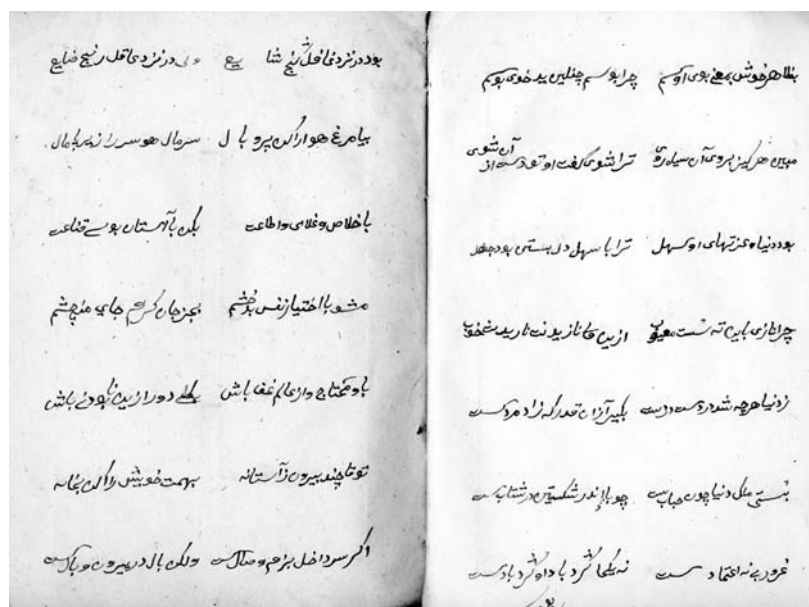 بظاهر خوش بمعنی بوی اوسم چرا بوسم چنین بد خوی بوسم
مبین هرکیز بروی آن سیاه روی ترا شوی گفت او تو دست از آن شوی
بود دنیا و عزتهای او سهل ترا با سهل دل بستن بود جهل
چرا نازی باین نه ازین
ز دنیا هرچه شد در دست دردست بگیر آزان قدر که زاد مردست
ملک دنیا چون حبابست چو بالا اندر شکستن در شتابست
غرور بے نه اعتمادست نه یکجا گرد باد او گرد بادست
بود در نزد غافل گنج شایع ولی در نزد عاقل رنج ضایع
بیا مرغ هوا را کن پر و بال سر مال هوس را زیر پا مال
باخلاص و غلامی و اطاعت بکن با آستان بوسے قناعت
مشو با اختیار نفس بدخشم بجز جان کس جای چشم
باو محتاج و از عالم غنے باش بکلے دور ازین باش
تو تا چند بیرون ز آستانه بهمت خویش را کن بخانه
اگر سر داخل بزم و ولکن بال در بیرون وبالست